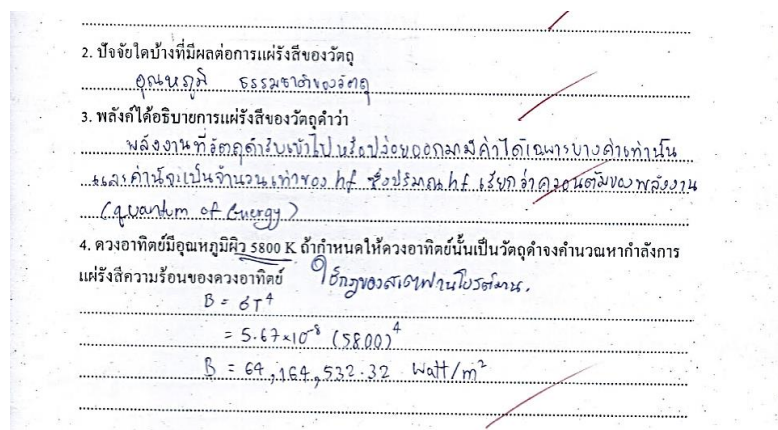 2. ปัจจัยใดบ้างที่มีผลต่อการแผ่รังสีของวัตถุ
อุณหภูมิ ธรรมชาติของวัตถุ
3. พลังค์ได้อธิบายการแผ่รังสีของวัตถุดำว่า
พลังงานที่วัตถุดำรับเข้าไปหรือปล่อยออกมามีค่าได้เฉพาะบางค่าเท่านั้น
และค่านี้จะเป็นจำนวนเท่าของ hf ซึ่งปริมาณ hf เรียกว่าควอนตัมของพลังงาน
(quantum of Energy)
4. ดวงอาทิตย์มีอุณหภูมิผิว 5800 K ถ้ากำหนดให้ดวงอาทิตย์นั้นเป็นวัตถุดำจงคำนวณหากำลังการ
แผ่รังสีความร้อนของดวงอาทิตย์ ใช้กฎของสเตฟานโบรต์มาน.
B = σT⁴
= 5.67×10⁻⁸ (5800)⁴
B = 64,164,532.32 Watt/m²